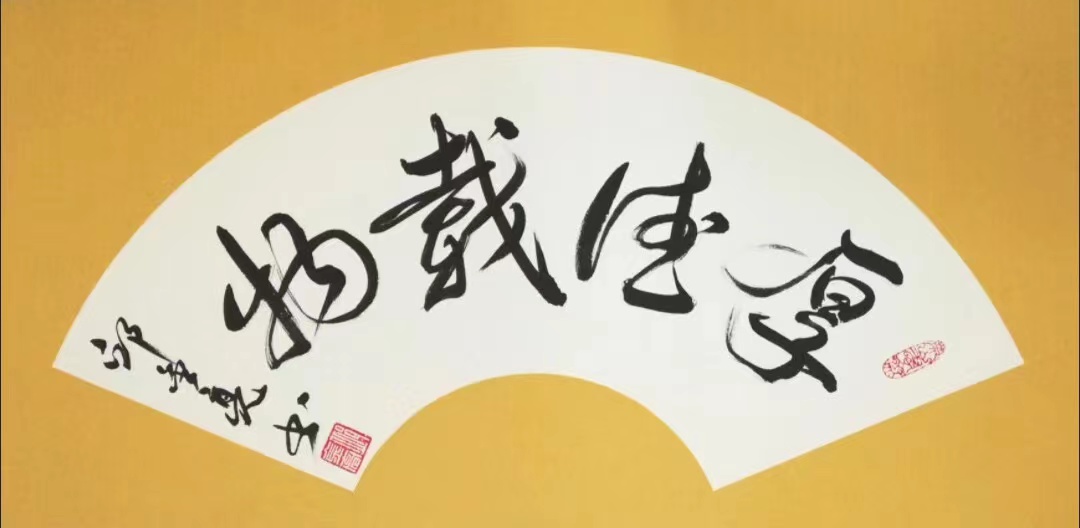 厚德载物
书